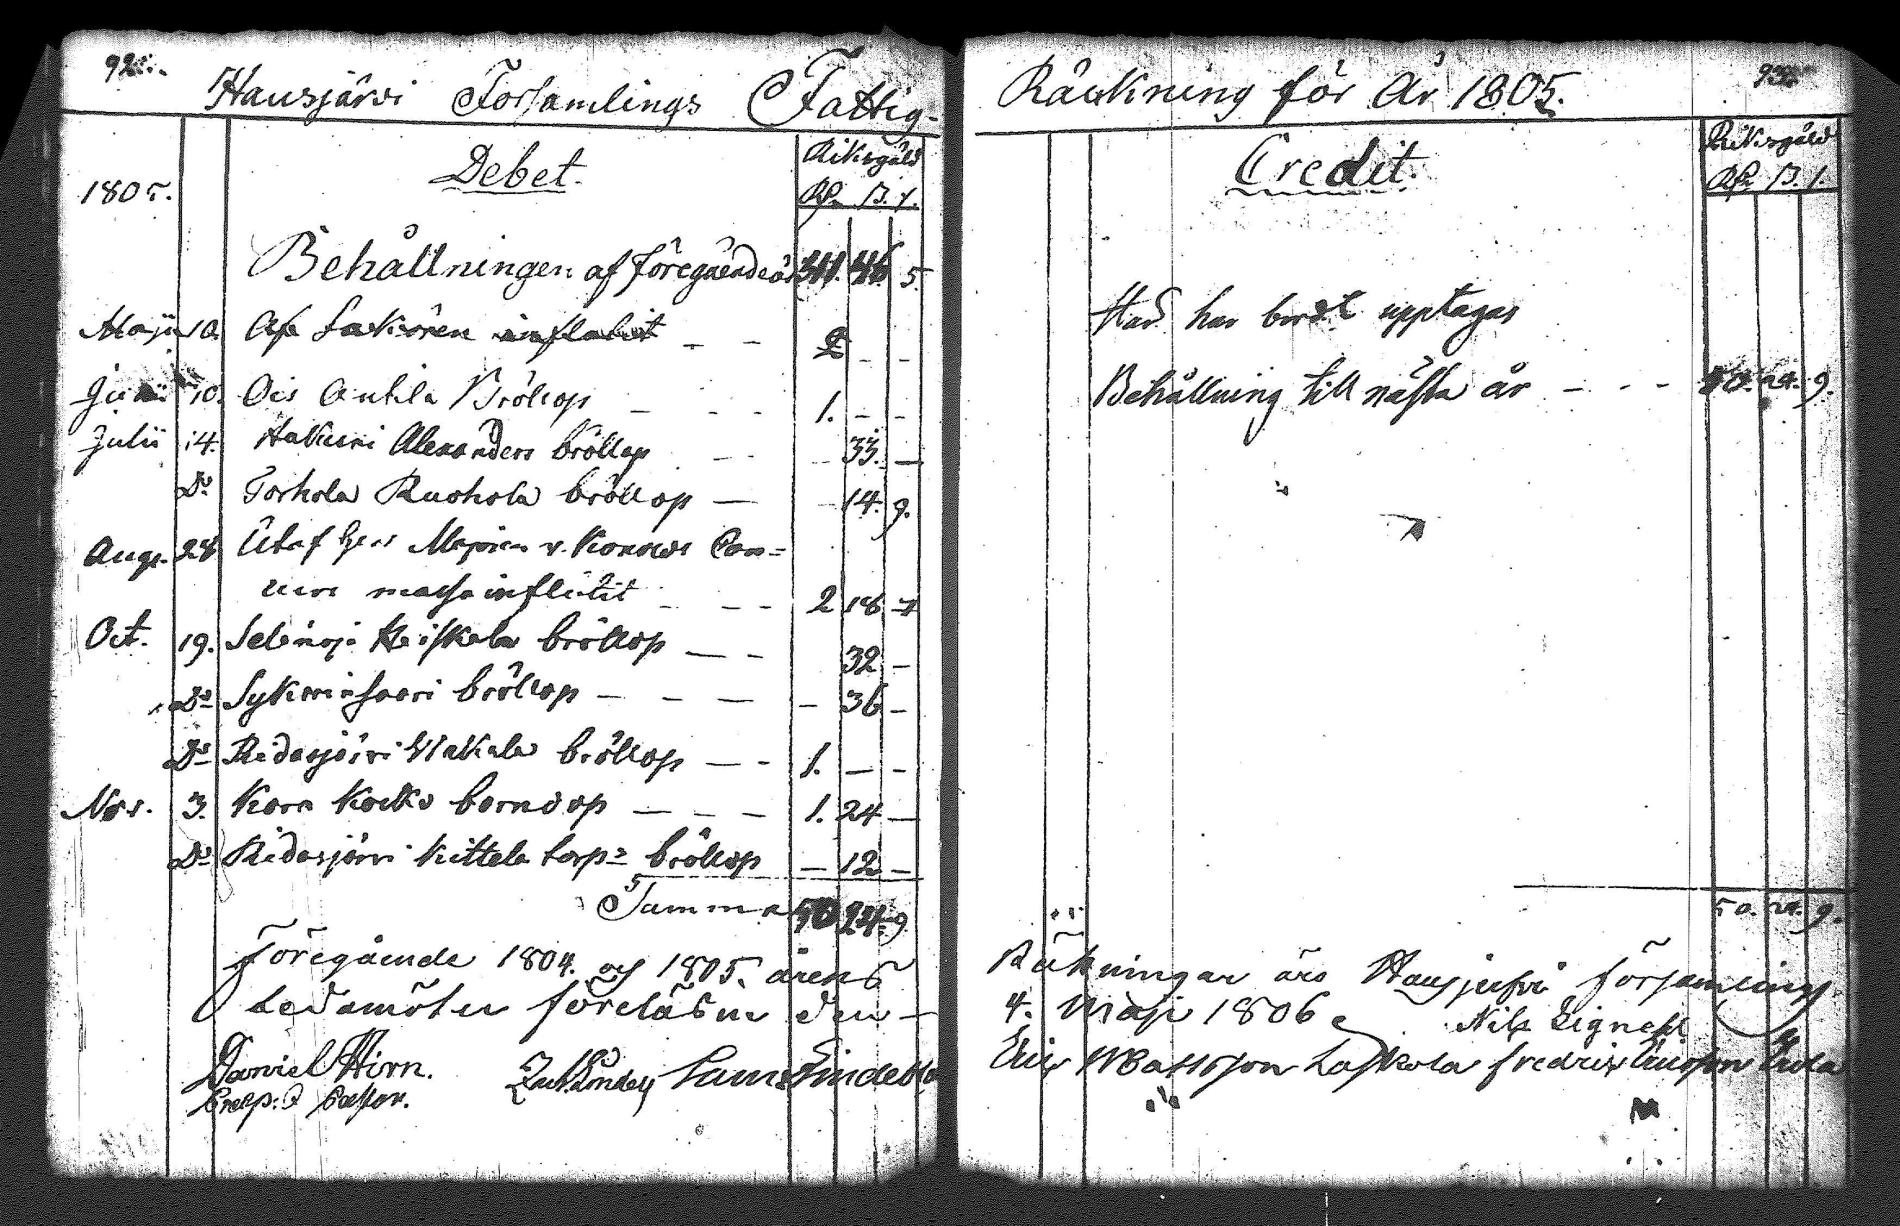 92
Hausjärvi Församlings Fattig-
Debet.
Riksgäld
1805.
Behållningen af föregående år 5.
Maji 10. Af Saköre 2 - -
Junii 10. Ois Antila Bröllop - - - 1. - -
Julii 14. Hakuni Alexanders bröllop - - 33. -
Do Torhola Ruohola bröllop - 14. 9.
Aug. 28 Utaf v. Konows Con=
curs massa influtit - - - 2 18
Oct. 19. Selänoja Heiskala bröllop - - 32 -
Do bröllop - - - - 36 -
Do Ridasjärvi bröllop - - 1. - -
Nov. 3. Kara Kocko barndop - - - 1. 24 -
Do Ridasjärvi Kittela torp= bröllop - 12 -
Summa 50 24. 9.
Föregående 1804. och 1805. årens
Ledamöter föreläsne den -
Daniel Hirn.
Pastor.
Räkning för År 1805.
Credit.
Riksgäld
Har bordt upptagas
Behållning till nästa år - - - 50. 24. 9.
50. 24. 9.
Räkningar äro Hausjärvi församlings
4. Maji 1806
Nils Lignell
Eric Mattsson Laskola fredric